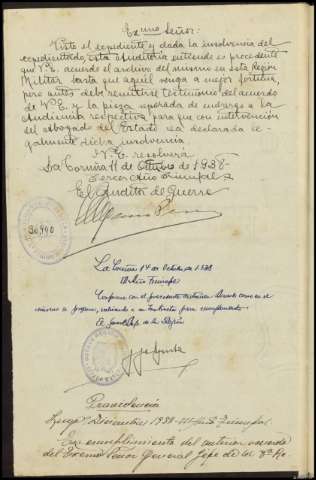 Exmo Señor:
Visto el expediente y dada la insolvencia del
expedientado, esta Auditoría entiende es procedente
que V.E. acuerde el archivo del mismo en esta Región
Militar hasta que aquél venga a mejor fortuna,
pero antes debe remitirse testimonio del acuerdo
de V.E. y la pieza separada de embargo a la
Audiencia respectiva para que con intervención
del abogado del Estado sea declarada le-
galmente dicha insolvencia.
V.E. resolverá
La Coruña 11 de Octubre de 1938-
Tercer Año Triunfal
El Auditor de Guerra
30.990
La Coruña 14 de Octubre de 1938
III Año Triunfal
Conforme con el precedente dictamen
se propone,
de la Región
Providencia
Lugo, Diciembre 1938- III Año Triunfal
En cumplimiento del anterior acuerdo
del Excmo Señor General Jefe de la 8ª Re.